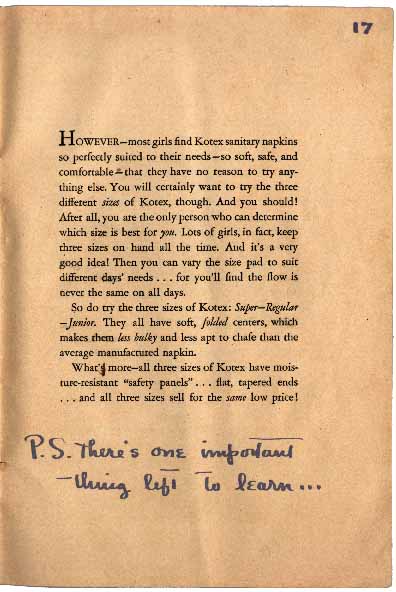 17
HOWEVER—most girls find Kotex sanitary napkins
so perfectly suited to their needs—so soft, safe, and
comfortable—that they have no reason to try any-
thing else. You will certainly want to try the three
different sizes of Kotex, though. And you should!
After all, you are the only person who can determine
which size is best for you. Lots of girls, in fact, keep
three sizes on hand all the time. And it's a very
good idea! Then you can vary the size pad to suit
different days' needs . . . for you'll find the flow is
never the same on all days.
So do try the three sizes of Kotex: Super—Regular
—Junior. They all have soft, folded centers, which
makes them less bulky and less apt to chafe than the
average manufactured napkin.
What's more—all three sizes of Kotex have mois-
ture-resistant "safety panels" . . . flat, tapered ends
. . . and all three sizes sell for the same low price!
P.S. There's one important
thing left to learn...